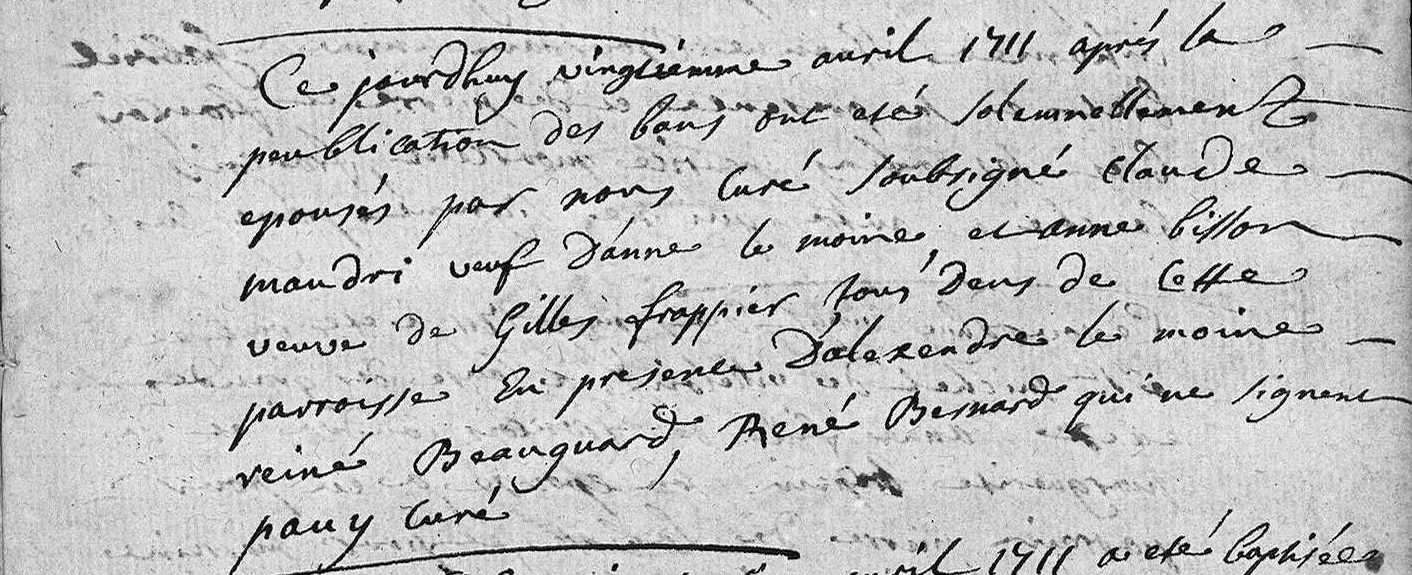 Ce jourdhuy vingtiémme avril 1711 aprés la
peublication des bans ont eté solemnellement
epousés par nous curé soubsigné Claude
maudri veuf d'anne le moine, et anne bisson
veuve de Gilles frappier tous deus de cette
parroisse En presence d'alexendre le moine
reiné Beauguard, René Besnard qui ne signent
pauy curé
avril 1711 a eté baptisée